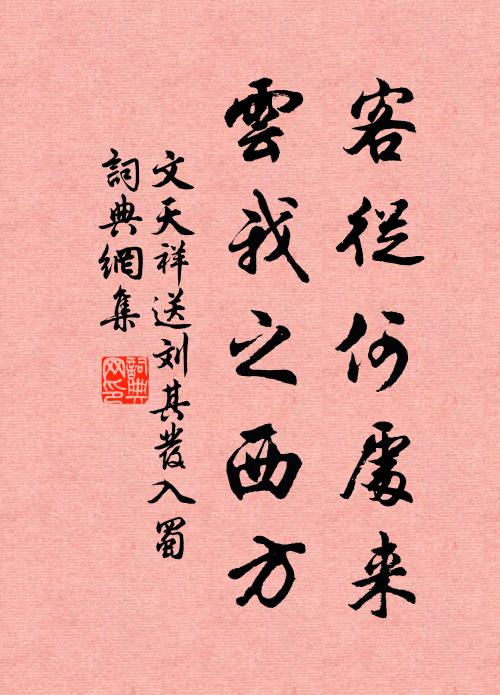 客從何處来
雲我之西方
文天祥送刘其發入蜀
詞典網集
詞典網印